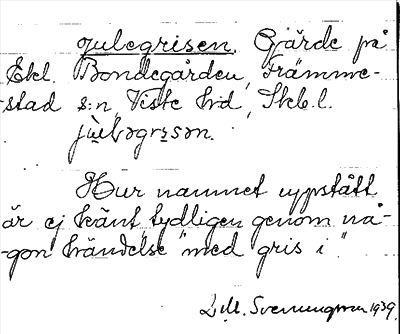 Julegrisen. Gjärde på
Ekl. Bondegården, Främme-
stad s:n, Viste hd, Skb.l.
jùləgrisən.
Hur namnet uppstått
är ej känt, tydligen genom nå-
gon händelse "med gris i".
Lill. Svenungsson 1939.